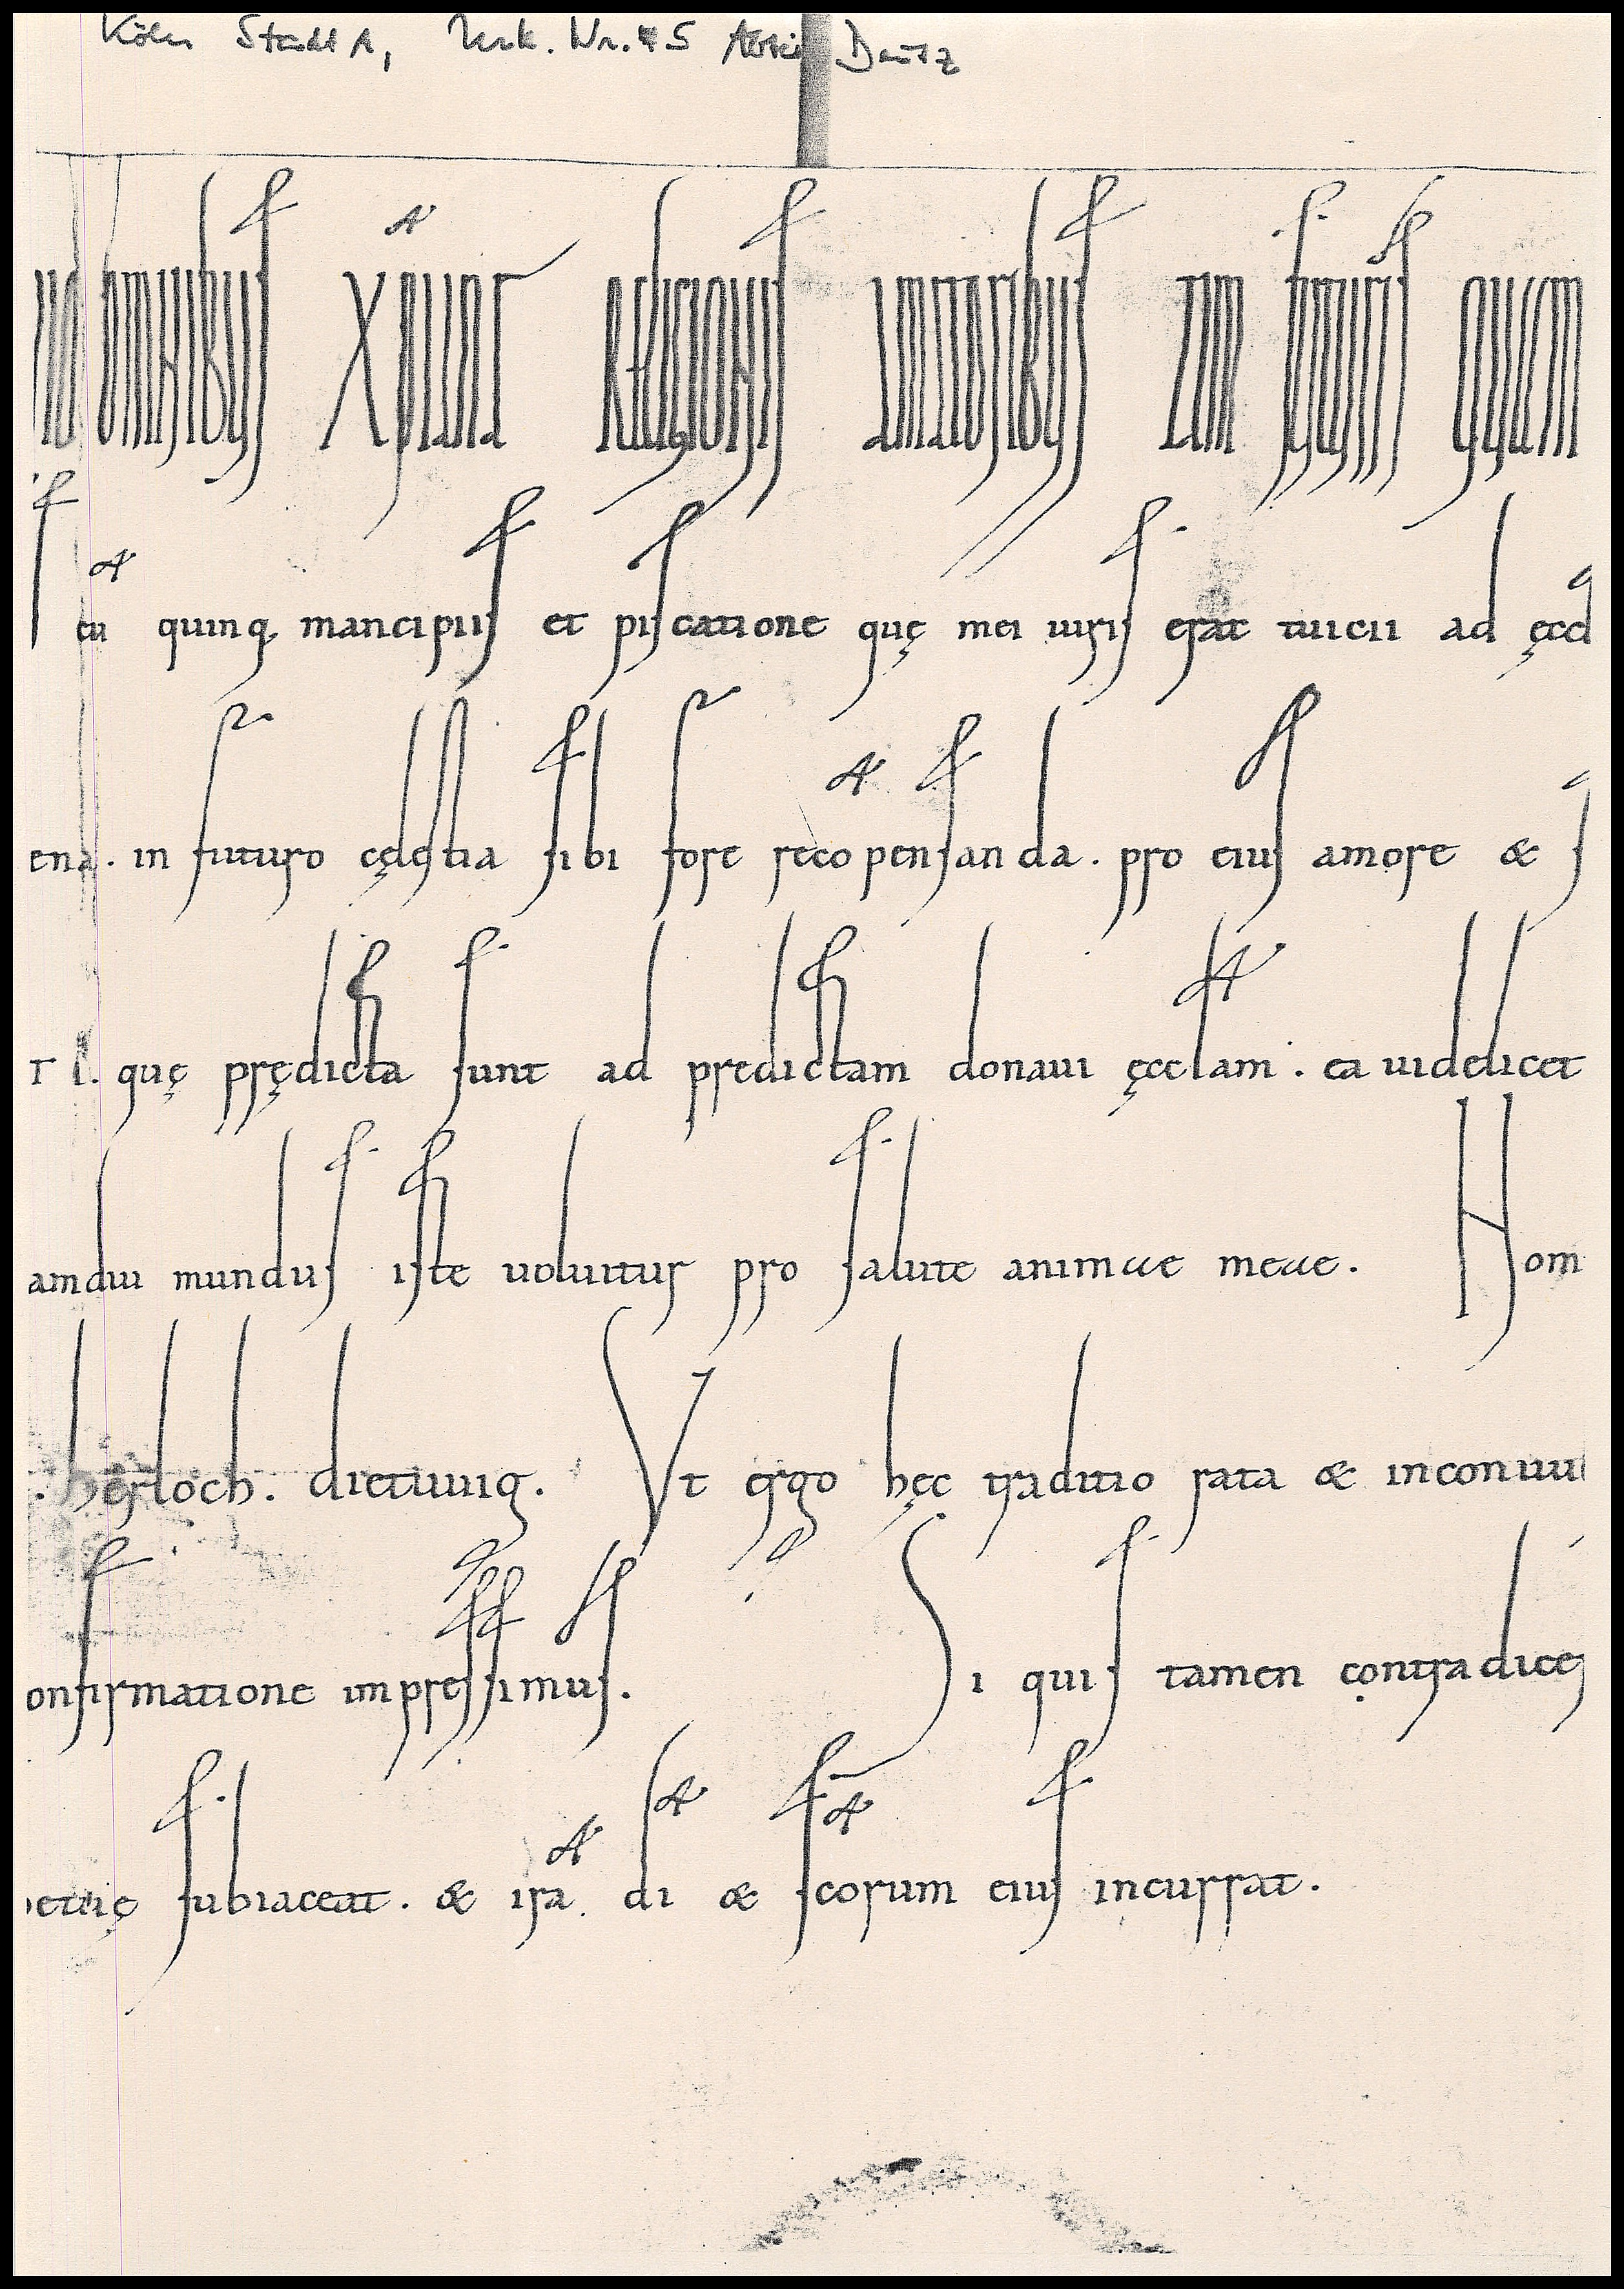 Köln StadtA, Urk. Nr. 45 Abtei Deutz
omnibus xpianę religionis amatoribus tam futuris quam
cu quinq mancipiis et piscatione quę mei iuris erat tuicii ad ęccl
ena. in futuro cęlestia sibi fore recopensanda. pro eius amore &
quę prędicta sunt ad predictam donaui ęcclam. ea uidelicet
amdiu mundus iste uoluitur pro salute animae meae. Hom
. herloch. dietuuig. Vt ergo hęc traditio rata & inconuul
onfirmatione impressimus. Si quis tamen contradicer
subiaceat. & ira di & scorum eius incurrat.